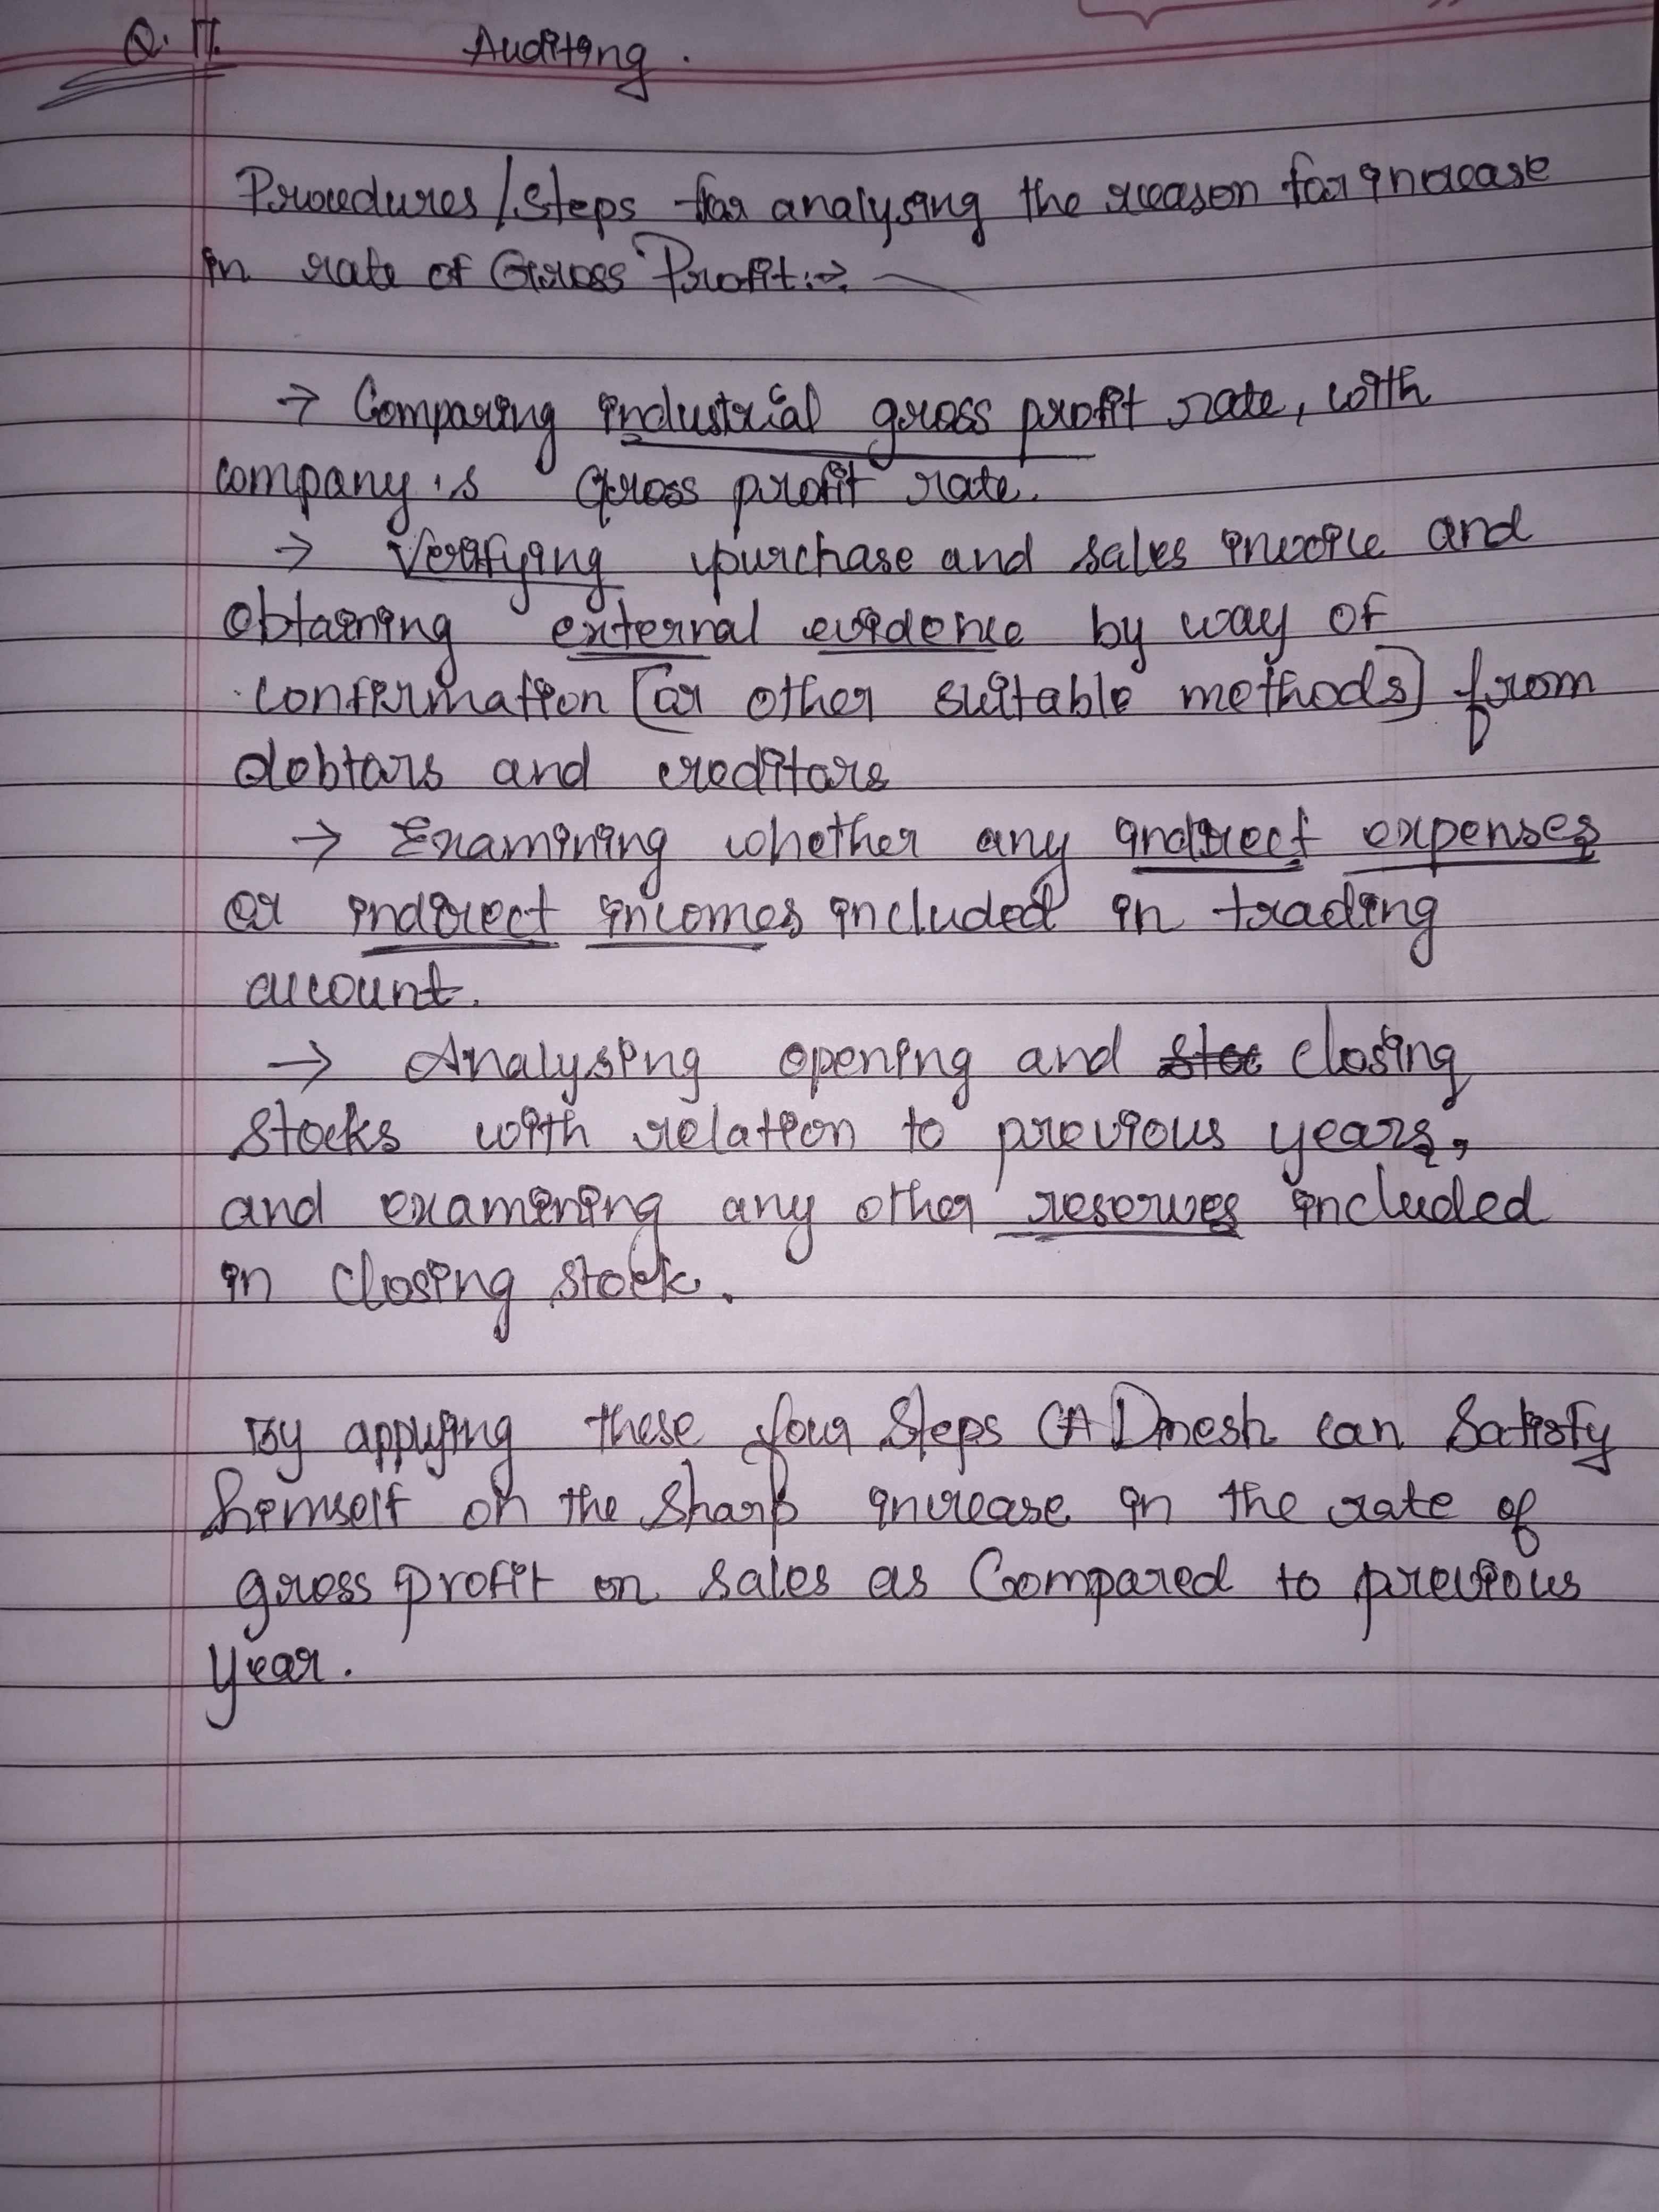 Q. 17. Auditing.
Procedures/Steps for analysing the reason for increase
in rate of Gross Profit:→
→ Comparing industrial gross profit rate, with
company's Gross profit rate.
→ Verifying purchase and sales invoice and
obtaining external evidence by way of
confirmation [or other suitable methods] from
debtors and creditors
→ Examining whether any indirect expenses
or indirect incomes included in trading
account.
→ Analysing opening and closing
stocks with relation to previous years,
and examining any other reserves included
in closing stock.
By applying these four Steps CA Dinesh can Satisfy
himself on the sharp increase in the rate of
gross profit on sales as Compared to previous
year.